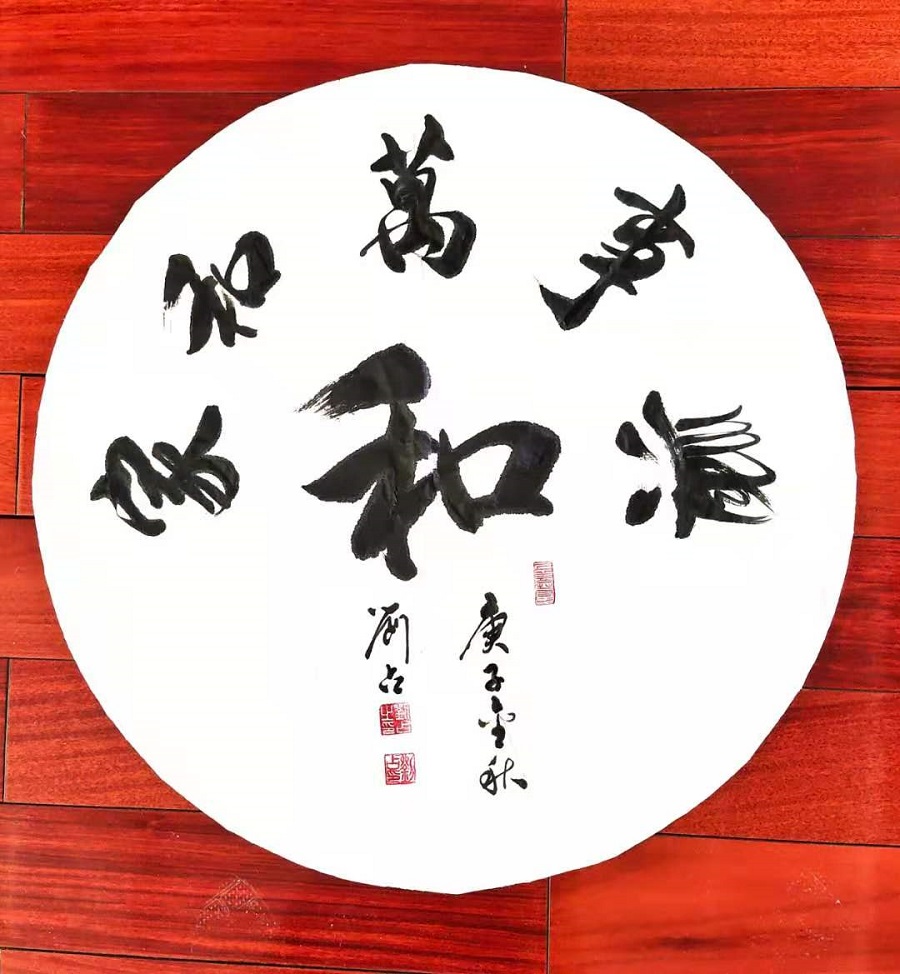 家和萬事興
和
庚子金秋
劉占